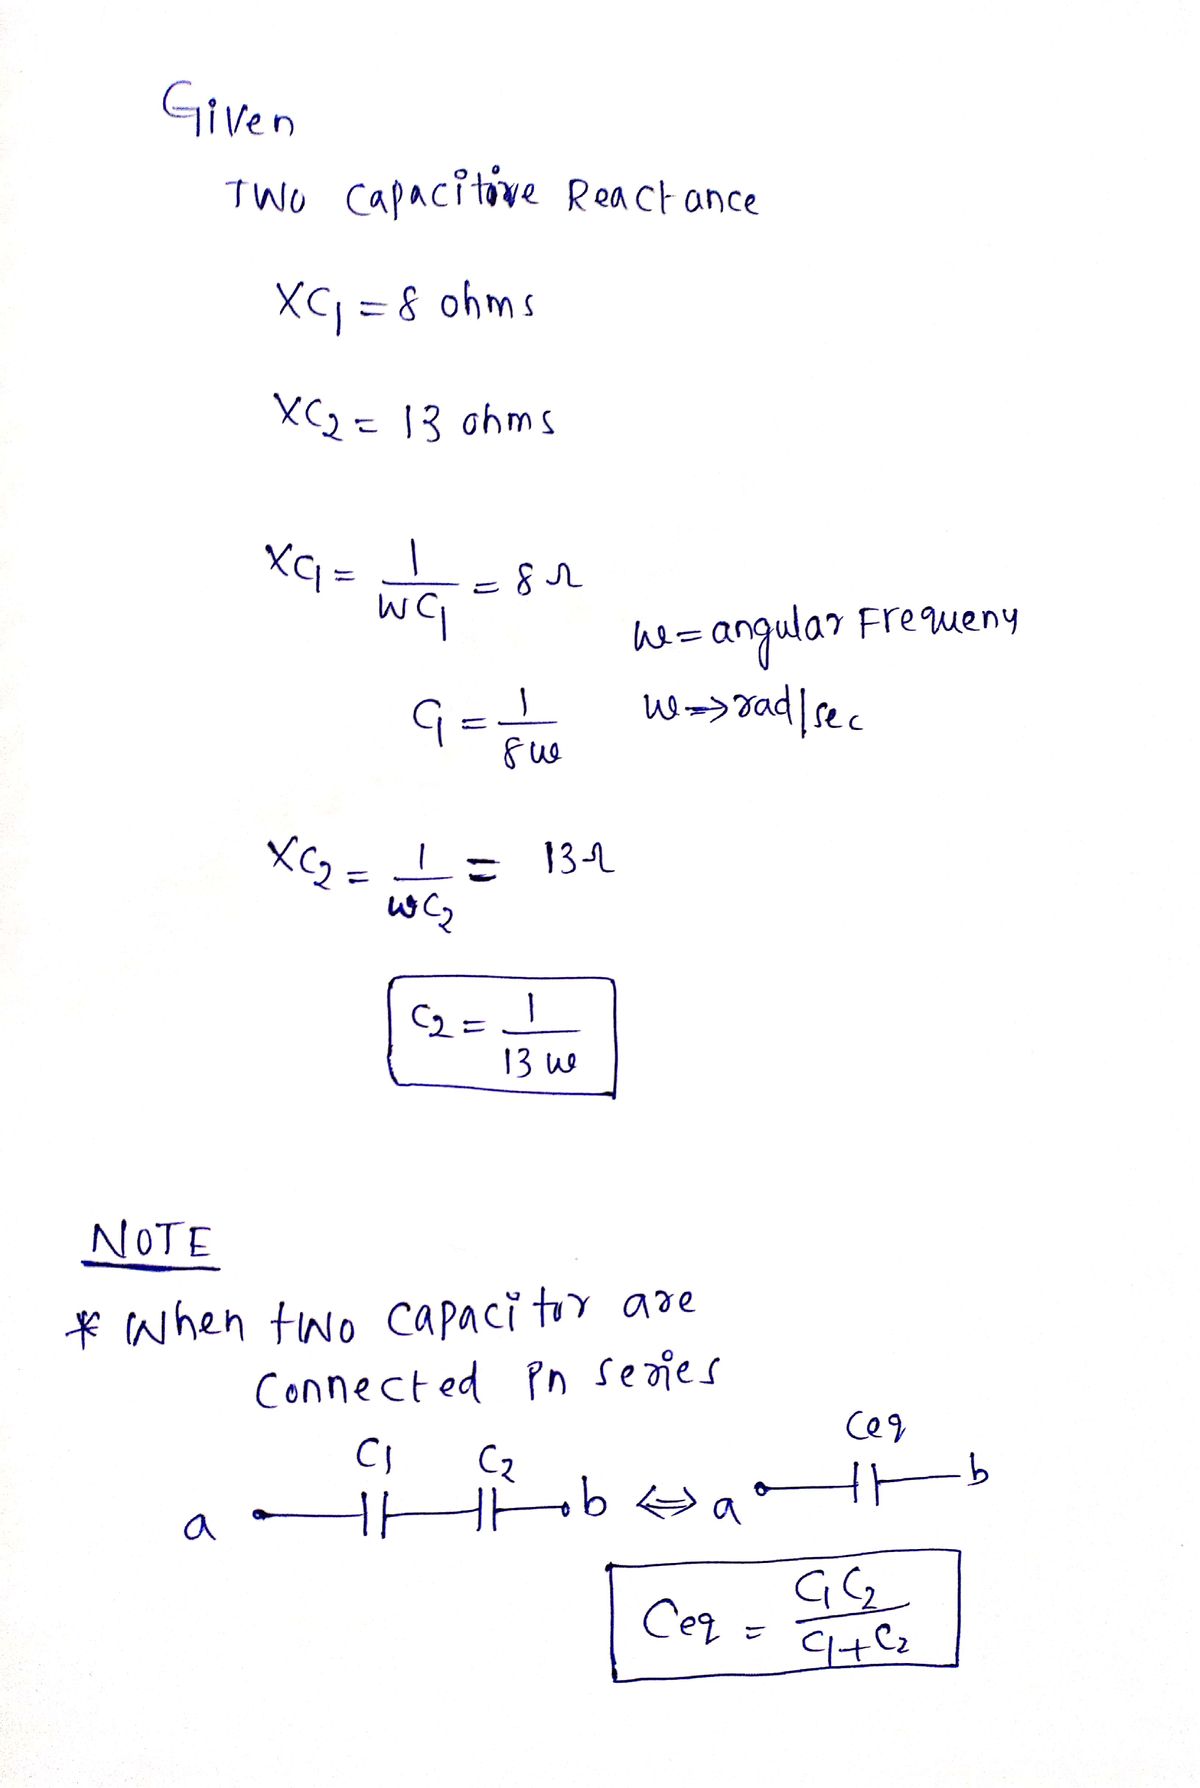 Given
TWO Capacitive Reactance
XC1 = 8 ohms
XC2 = 13 ohms
XC1 = 1/WC1 = 8 Ω
w = angular Frequeny
C1 = 1/8w
w → rad/sec
XC2 = 1/wC2 = 13 Ω
C2 = 1/13 w
NOTE
* When two capacitor are
Connected in series
C1 C2 Ceq
a b ⇔ a b
Ceq = C1C2/C1+C2